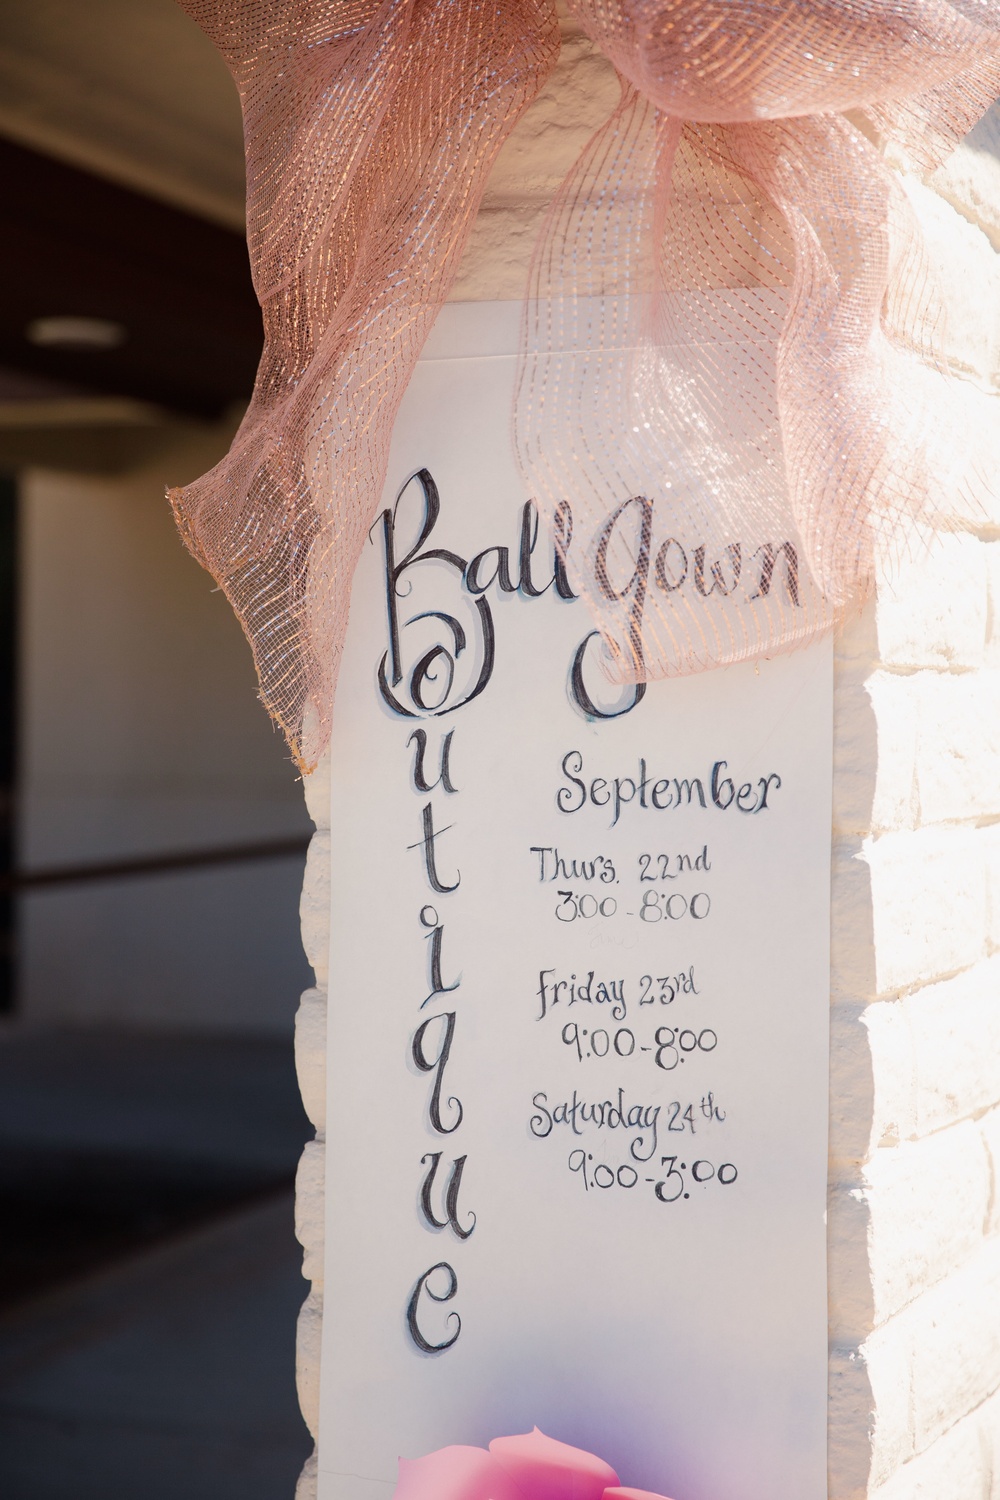 Ball Gown
Boutique
September
Thurs. 22nd
3:00-8:00
Friday 23rd
9:00-8:00
Saturday 24th
9:00-3:00